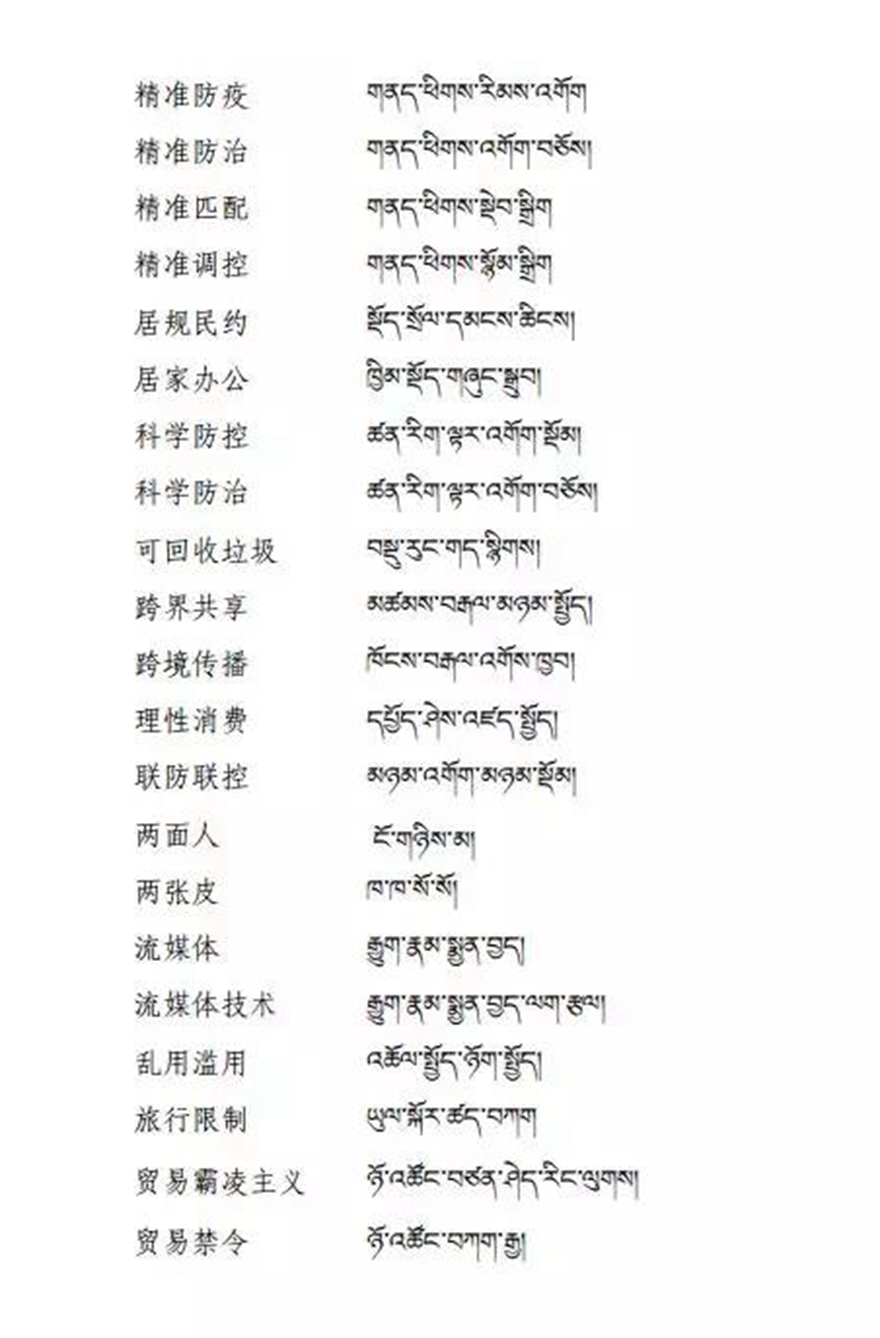 精准防疫 གནད་ཕིགས་རིམས་འགོག
精准防治 གནད་ཕིགས་འགོག་བཅོས།
精准匹配 གནད་ཕིགས་སྡེབ་སྒྲིག
精准调控 གནད་ཕིགས་སྙོམ་སྒྲིག
居规民约 སྡོད་སྲོལ་དམངས་ཆིངས།
居家办公 ཁྱིམ་སྡོད་གཞུང་སྒྲུབ།
科学防控 ཚན་རིག་ལྟར་འགོག་སྡོམ།
科学防治 ཚན་རིག་ལྟར་འགོག་བཅོས།
可回收垃圾 བསྡུ་རུང་གད་སྙིགས།
跨界共享 མཚམས་བརྒལ་མཉམ་སྤྱོད།
跨境传播 ཁོངས་བརྒལ་འགོས་ཁྱབ།
理性消费 དཔྱོད་ཤེས་འཛད་སྤྱོད།
联防联控 མཉམ་འགོག་མཉམ་སྡོམ།
两面人 ངོ་གཉིས་མ།
两张皮 ཁ་ཁ་སོ་སོ།
流媒体 རྒྱུག་རྣམ་སྨྱན་བྱད།
流媒体技术 རྒྱུག་རྣམ་སྨྱན་བྱད་ལག་རྩལ།
乱用滥用 འཆོལ་སྤྱོད་ཉོག་སྤྱོད།
旅行限制 ཡུལ་སྐོར་ཚད་བཀག
贸易霸凌主义 ཉོ་འཚོང་བཙན་ཤེད་རིང་ལུགས།
贸易禁令 ཉོ་འཚོང་བཀག་རྒྱ།